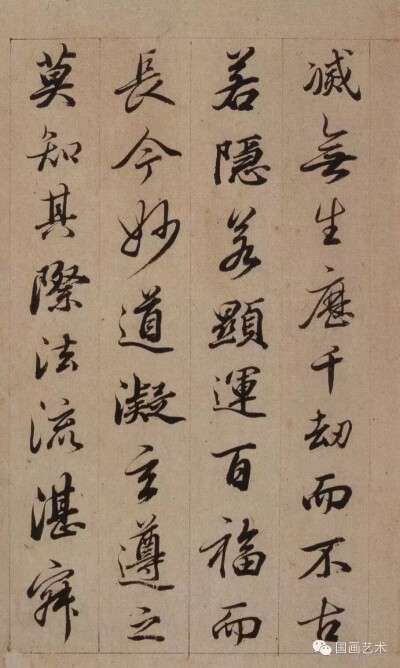 滅無生歷千劫而不古
若隱若顯運百福而
長今妙道凝玄遵之
莫知其際法流湛寂
国画艺术